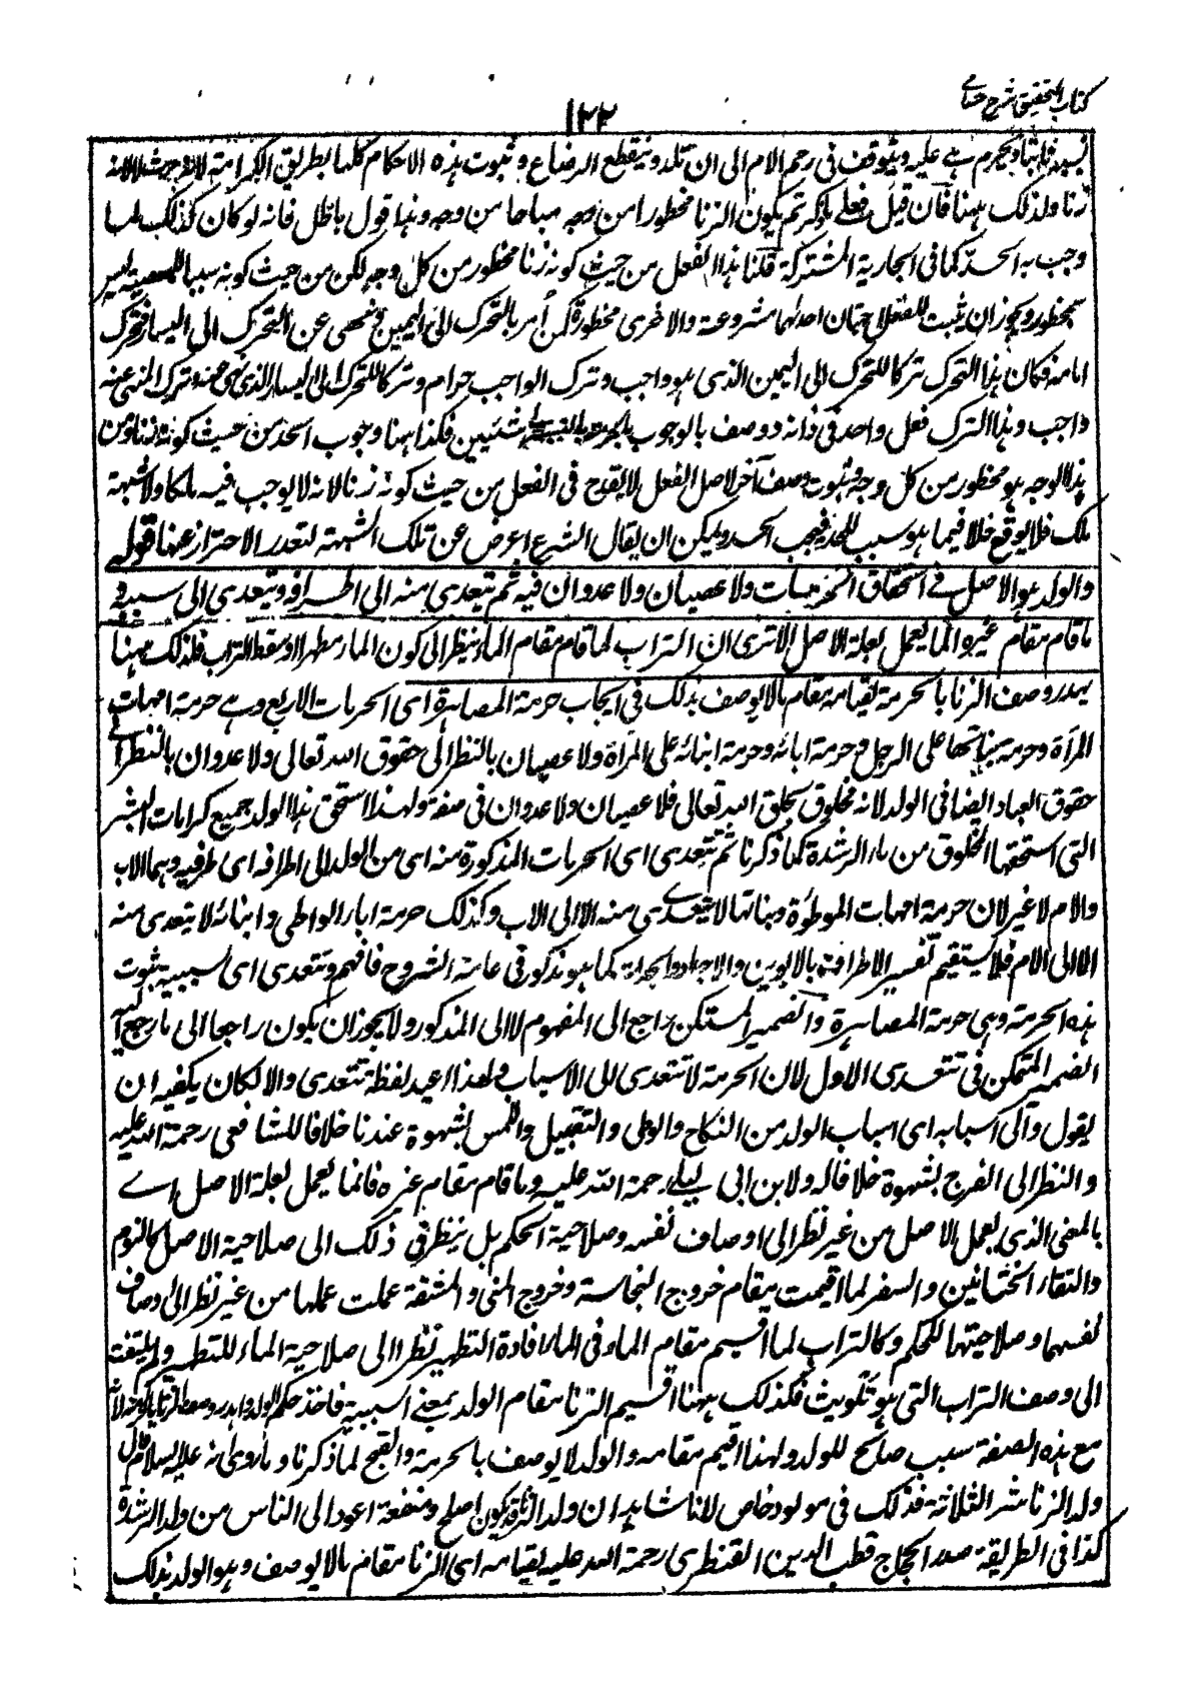 كتاب التحقيق شرح حسامي
١٢٢
ويحرم هي عليه ويتوقف في رجم الام الى ان تلد وينقطع الرضاع وثبوت هذه الاحكام كلها بطريق الكرامة
زنا ولذلك ههنا فان قيل فعلى ما ذكرتم يكون الزنا محظورا من وجه مباحا من وجه وهذا قول باطل فانه لو كان كذلك لما
وجب به الحد كما في الجارية المشتركة قلنا هذا الفعل من حيث كونه زنا محظور من كل وجه لكن من حيث كونه سببا ليس
بمحظور ويجوز ان يثبت للفعل جهتان احدهما مشروعة والاخرى محظورة كمن أمر بالتحرك الى اليمين ونهى عن التحرك الى اليسار فتحرك
امامه فكان هذا التحرك تركا للتحرك الى اليمين الذى هو واجب وترك الواجب حرام وتركا للتحرك الى اليسار الذى نهى عنه وترك المنهى عنه
واجب وهذا الترك فعل واحد في ذاته ووصف بالوجوب شيئين فكذا ههنا وجوب الحد من حيث كونه زنا ومن
هذا الوجه هو محظور من كل وجه وثبوت وصف آخر لاصل الفعل لا يقدح في الفعل من حيث كونه زنا لانه لا يوجب فيه ملكا ولا شبهة
ملك فلا يوقع خللا فيما هو سبب للحد فيجب الحد ويمكن ان يقال الشرع اعرض عن تلك الشبهة لتعذر الاحتراز عنها قوله
والولد هو الاصل في استحقاق الحرمات ولا عصيان ولا عدوان فيه ثم تتعدى منه الى اطرافه وتتعدى الى سببه و
ما قام مقام غيره انما يعمل بعلة الاصل الا ترى ان التراب لما قام مقام الماء نظر الى كون الماء مطهرا وسقط التراب فلذلك ههنا
يهدر وصف الزنا بالحرمة لقيامه مقام ما لا يوصف بذلك في ايجاب حرمة المصاهرة اى الحرمات الاربع وهى حرمة امهات
المرأة وحرمة بناتها على الرجل وحرمة ابائه وحرمة ابنائه على المرأة ولا عصيان بالنظر الى حقوق الله تعالى ولا عدوان بالنظر الى
حقوق العباد ايضا في الولد لانه مخلوق بخلق الله تعالى فلا عصيان ولا عدوان في صنعه ولهذا استحق هذا الولد جميع كرامات البشر
التى استحقها المخلوق من ماء الرشدة كما ذكرنا ثم تتعدى اى الحرمات المذكورة منه اى من الولد الى اطرافه اى طرفيه وهما الاب
والام لا غير لان حرمة امهات الموطوءة وبناتها لا تتعدى منه الا الى الاب وكذلك حرمة اباء الواطى وابنائه لا يتعدى منه
الا الى الام فلا يستقيم تفسير الاطراف بالابوين والاجداد والجدات كما هو مذكور في عامة الشروح فافهم وتتعدى اى سببية ثبوت
هذه الحرمة وهى حرمة المصاهرة والضمير المستكن راجع الى المفهوم لا الى المذكور ولا يجوز ان يكون راجعا الى ما رجع اليه
الضمير المتمكن في تتعدى الاول لان الحرمة لا تتعدى الى الاسباب ولهذا اعيد لفظة تتعدى والا لكان يكفيه ان
يقول والى اسبابه اى اسباب الولد من النكاح والوطى والتقبيل واللمس بشهوة عندنا خلافا للشافعى رحمة الله عليه
والنظر الى الفرج بشهوة خلافا له ولابن ابى ليلى رحمة الله عليه وما قام مقام غيره فانما يعمل بعلة الاصل اى
بالمعنى الذى يعمل الاصل من غير نظر الى اوصاف نفسه وصلاحية الحكم بل ينظر في ذلك الى صلاحية الاصل كالنوم
والتقاء الختانين والسفر لما اقيمت مقام خروج النجاسة وخروج المنى والمشقة عملت عملها من غير نظر الى اوصاف
نفسها وصلاحيتها للحكم وكالتراب لما اقيم مقام الماء في افادة التطهير نظر الى صلاحية الماء للتطهير ولم يلتفت
الى وصف التراب التى هو تلويث فكذلك ههنا اقيم الزنا مقام الولد بمعنى السببية فاخذ حكم الولد واهدر وصف الزنا
مع هذه الصفة سبب صالح للولد ولهذا اقيم مقامه والولد لا يوصف بالحرمة والقبح لما ذكرنا وما روى انه عليه السلام قال
ولد الزنا شر الثلاثة فذلك في مولود خاص لانا نشاهد ان ولد الزنا قد يكون اصلح ومنفعة اعود الى الناس من ولد الرشدة
كذا في الطريقة صدر الحجاج قطب الدين القنطرى رحمة الله عليه لقيامه اى الزنا مقام ما لا يوصف وهو الولد بذلك